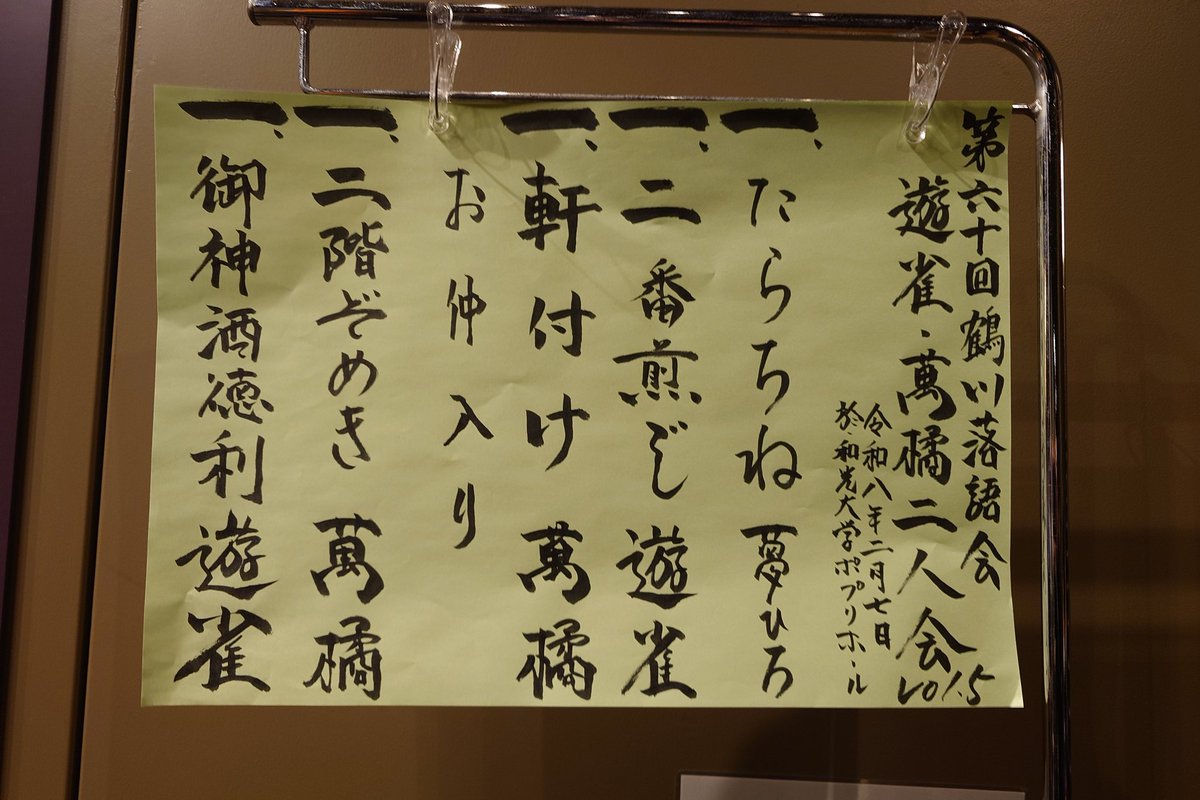 第六十回鶴川落語会
遊雀・萬橘二人会vol.5
令和八年二月七日
於・和光大学ポプリホール
一、たらちね 夢ひろ
一、二番煎じ 遊雀
一、軒付け 萬橘
お仲入り
一、二階ぞめき 萬橘
一、御神酒徳利 遊雀